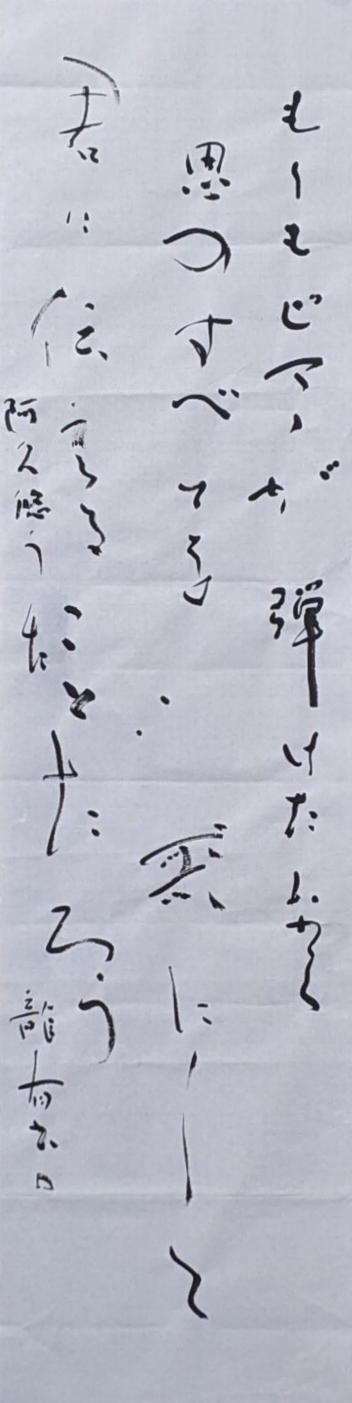 もしもピアノが弾けたなら
思のすべてを歌にして
君に伝えることだろう
阿久悠うた